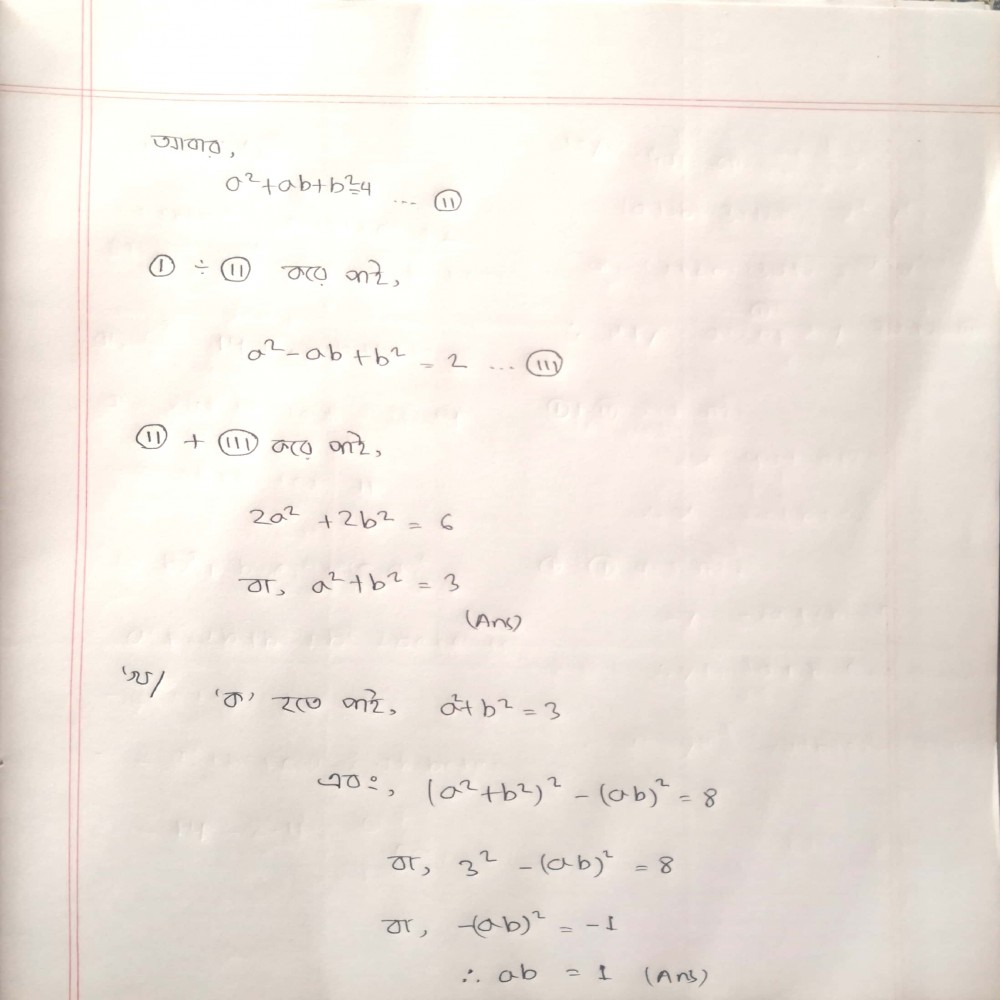 আবার,
a²+ab+b²=4 ... ⑪
① ÷ ⑪ করে পাই,
a² - ab + b² = 2 ... (111)
⑪ + (111) করে পাই,
2a² + 2b² = 6
বা, a² + b² = 3
(Ans)
'খ/ 'ক' হতে পাই, a²+b² = 3
এবং, (a²+b²)² - (ab)² = 8
বা, 3² - (ab)² = 8
বা, -(ab)² = -1
∴ ab = 1 (Ans)